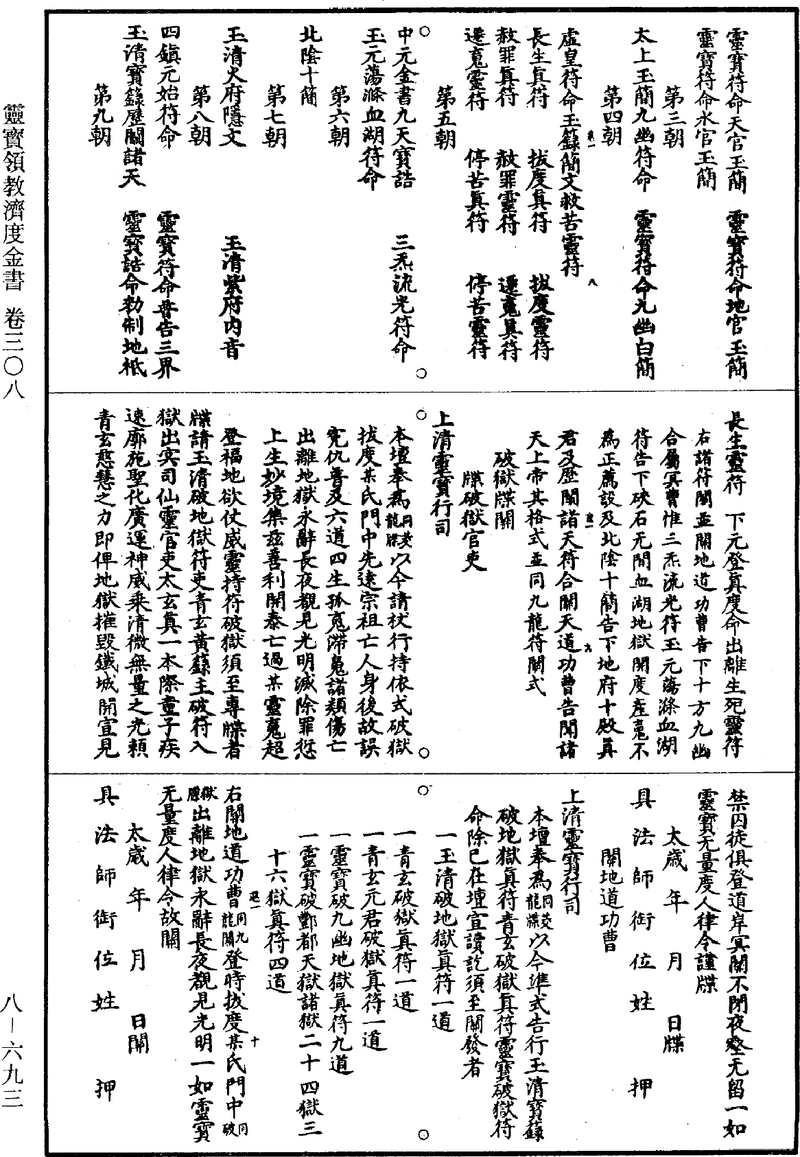 靈寶領教濟度金書　卷三〇八
八－六九三
靈寶符命天官玉簡　靈寶符命地官玉簡
靈寶符命水官玉簡
第三朝
太上玉簡九幽符命　靈寶符命九幽白簡
第四朝
虛皇符命玉籙簡文救苦靈符
長生真符　拔度真符　拔度靈符
赦罪真符　赦罪靈符　還魂真符
還魂靈符　停苦真符　停苦靈符
第五朝
中元金書九天寶誥　三炁流光符命
玉元蕩滌血湖符命
第六朝
北陰十簡
第七朝
玉清火府隱文　玉清紫府內音
第八朝
四鎮元始符命　靈寶符命普告三界
玉清寶籙歷關諸天　靈寶誥命勑制地祇
第九朝
長生靈符　下元登真度命出離生死靈符
右諸符關並關地道功曹告下十方九幽
合屬冥曹惟三炁流光符玉元蕩滌血湖
符告下硤石无間血湖地獄開度產魂不
為正薦設及北陰十簡告下地府十殿真
君及歷關諸天符合關天道功曹告聞諸
天上帝其格式並同九龍符關式
破獄牒關
牒破獄官吏
上清靈寶行司
本壇奉為同茭龍牒以今請杖行持依式破獄
拔度某氏門中先遠宗祖亡人身後故誤
冤仇普及六道四生孤魂滯魄諸類傷亡
出離地獄永辭長夜覩見光明滅除罪愆
上生妙境集茲善利開泰亡過某靈魂超
登福地欲仗威靈持符破獄須至專牒者
牒請玉清破地獄符吏青玄黃籙主破符入
獄出冥司仙靈官吏太玄真一本際童子疾
速廓苑聖化廣運神威乘清微無量之光賴
青玄慈慧之力即俾地獄摧毀鐵城開宣見
禁囚徒俱登道岸冥關不閉夜壑无留一如
靈寶无量度人律令謹牒
太歲年　月　日牒
具法師銜位姓　押
關地道功曹
上清靈寶行司
本壇奉為同茭龍牒以今準式告行玉清寶籙
破地獄真符青玄破獄真符靈寶破獄符
命除已在壇宣讀訖須至關發者
一玉清破地獄真符一道
一青玄破獄真符一道
一青玄元君破獄真符一道
一靈寶破九幽地獄真符九道
一靈寶破酆都天獄諸獄二十四獄三
十六獄真符四道
右關地道功曹同九龍關登時拔度某氏門中同破獄牒
出離地獄永辭長夜覩見光明一如靈寶
无量度人律令故關
太歲年　月　日關
具法師銜位姓　押